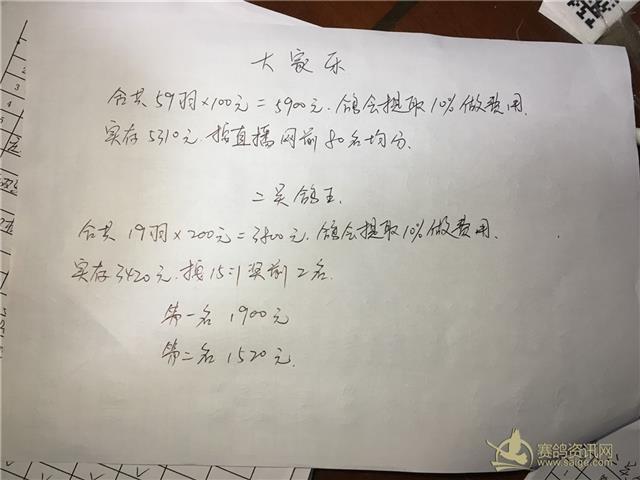 大家乐
合共59羽×100元=5900元.鸽会提取10%做费用.
实存5310元.按直播网前80名均分.
二关鸽王.
合共19羽×200元=3800元.鸽会提取10%做费用.
实存3420元.按15:1奖前2名.
第一名 1900元
第二名 1520元.
赛鸽资讯网
www.saige.com